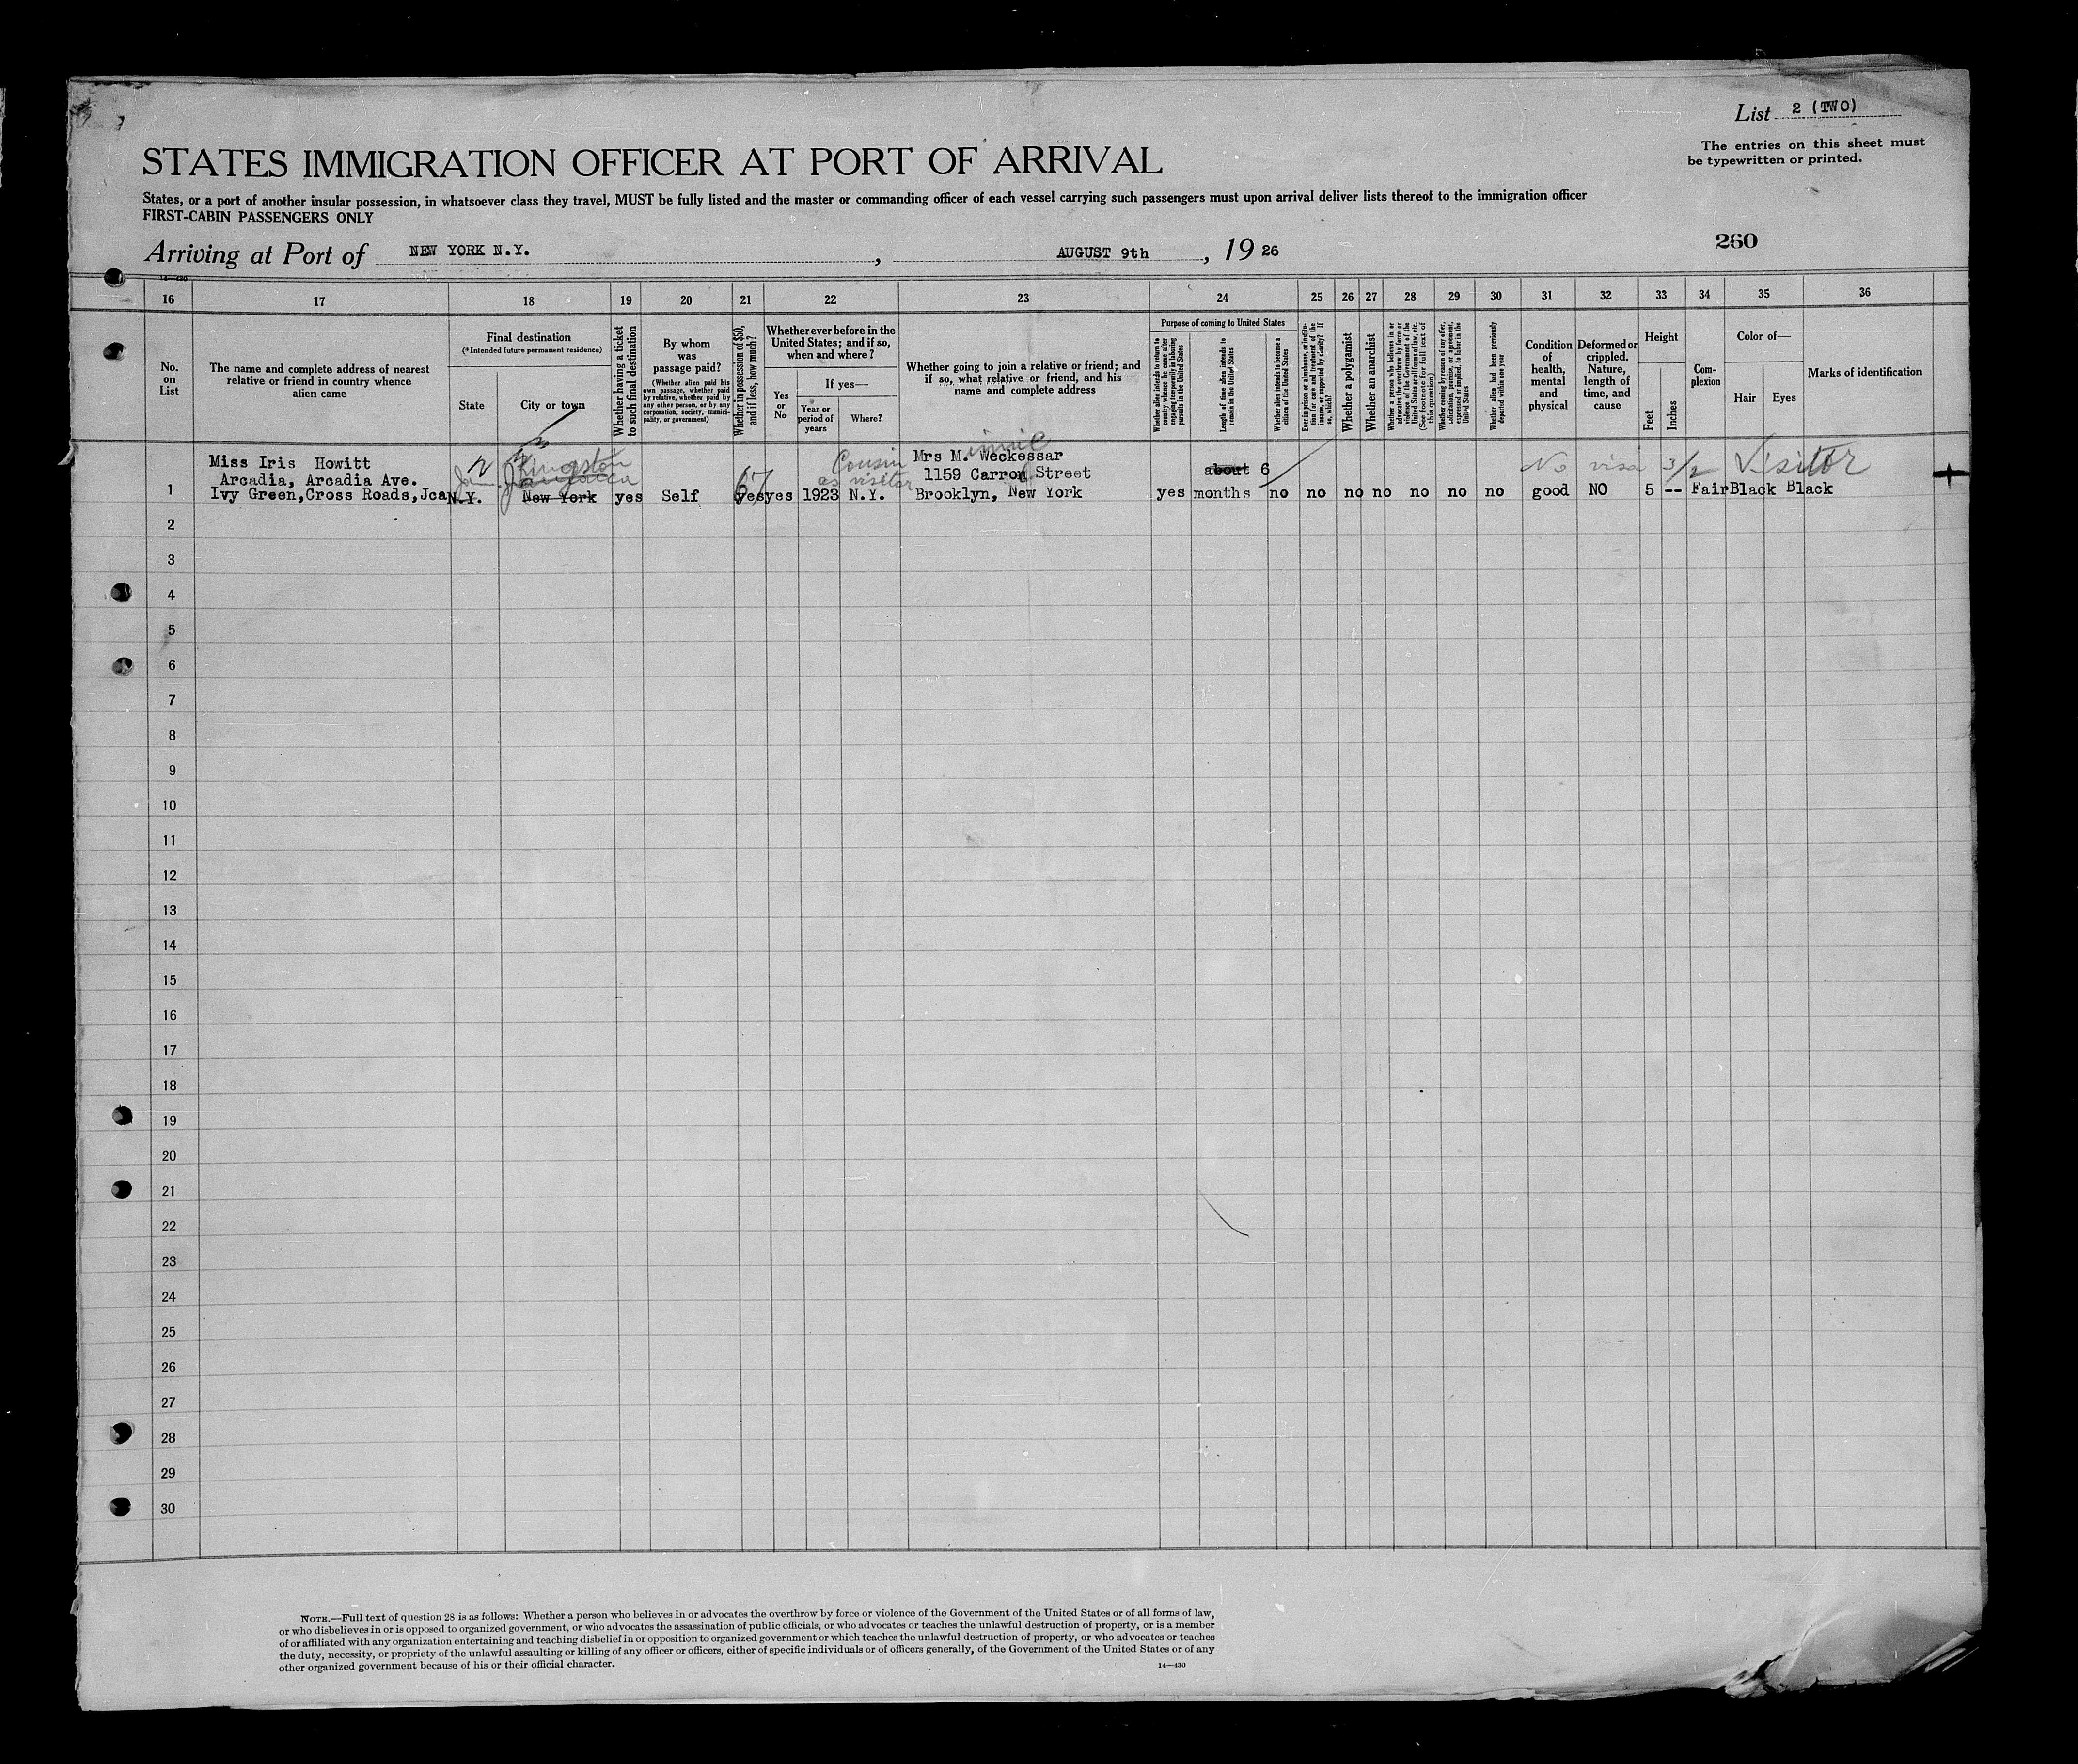 List 2 (TWO)
The entries on this sheet must
be typewritten or printed.
STATES IMMIGRATION OFFICER AT PORT OF ARRIVAL
States, or a port of another insular possession, in whatsoever class they travel, MUST be fully listed and the master or commanding officer of each vessel carrying such passengers must upon arrival deliver lists thereof to the immigration officer
FIRST-CABIN PASSENGERS ONLY
260
Arriving at Port of NEW YORK N.Y. , AUGUST 9th , 19 26
14-430
16 17 18 19 20 21 22 23 24 25 26 27 28 29 30 31 32 33 34 35 36
No.
on
List
The name and complete address of nearest
relative or friend in country whence
alien came
Final destination
(*Intended future permanent residence)
State
City or town
Whether having a ticket
to such final destination
By whom
was
passage paid?
(Whether alien paid his
own passage, whether paid
by relative, whether paid by
any other person, or by any
corporation, society, munici-
pality, or government)
Whether in possession of $50,
and if less, how much?
Whether ever before in the
United States; and if so,
when and where?
Yes
or
No
If yes—
Year or
period of
years
Where?
Whether going to join a relative or friend; and
if so, what relative or friend, and his
name and complete address
Purpose of coming to United States
Whether alien intends to return to
country whence he came after
engaging temporarily in laboring
pursuits in the United States
Length of time alien intends to
remain in the United States
Whether alien intends to become a
citizen of the United States
Ever in prison or almshouse, or institu-
tion for care and treatment of the
insane, or supported by charity? If
so, which?
Whether a polygamist
Whether an anarchist
Whether a person who believes in or
advocates the overthrow by force or
violence of the Government of the
United States or all forms of law, etc.
(See footnote for full text of
this question)
Whether coming by reason of any offer,
solicitation, promise, or agreement,
expressed or implied, to labor in the
United States
Whether alien had been previously
deported within one year
Condition
of
health,
mental
and
physical
Deformed or
crippled.
Nature,
length of
time, and
cause
Height
Feet
Inches
Com-
plexion
Color of—
Hair
Eyes
Marks of identification
Miss Iris Howitt
Arcadia, Arcadia Ave.
1 Ivy Green,Cross Roads,Jca
N.Y.
Kingston
Jamaica
New York
yes Self 67 yes yes 1923 N.Y.
Cousin
as visitor
Mrs M. Weckessar
1159 Carron Street
Brooklyn, New York
yes
about 6
months
no no no no no no no good NO 5 -- Fair Black Black
No visa 3/2 Visitor
2
3
4
5
6
7
8
9
10
11
12
13
14
15
16
17
18
19
20
21
22
23
24
25
26
27
28
29
30
NOTE.—Full text of question 28 is as follows: Whether a person who believes in or advocates the overthrow by force or violence of the Government of the United States or of all forms of law,
or who disbelieves in or is opposed to organized government, or who advocates the assassination of public officials, or who advocates or teaches the unlawful destruction of property, or is a member
of or affiliated with any organization entertaining and teaching disbelief in or opposition to organized government or which teaches the unlawful destruction of property, or who advocates or teaches
the duty, necessity, or propriety of the unlawful assaulting or killing of any officer or officers, either of specific individuals or of officers generally, of the Government of the United States or of any
other organized government because of his or their official character.
14—430